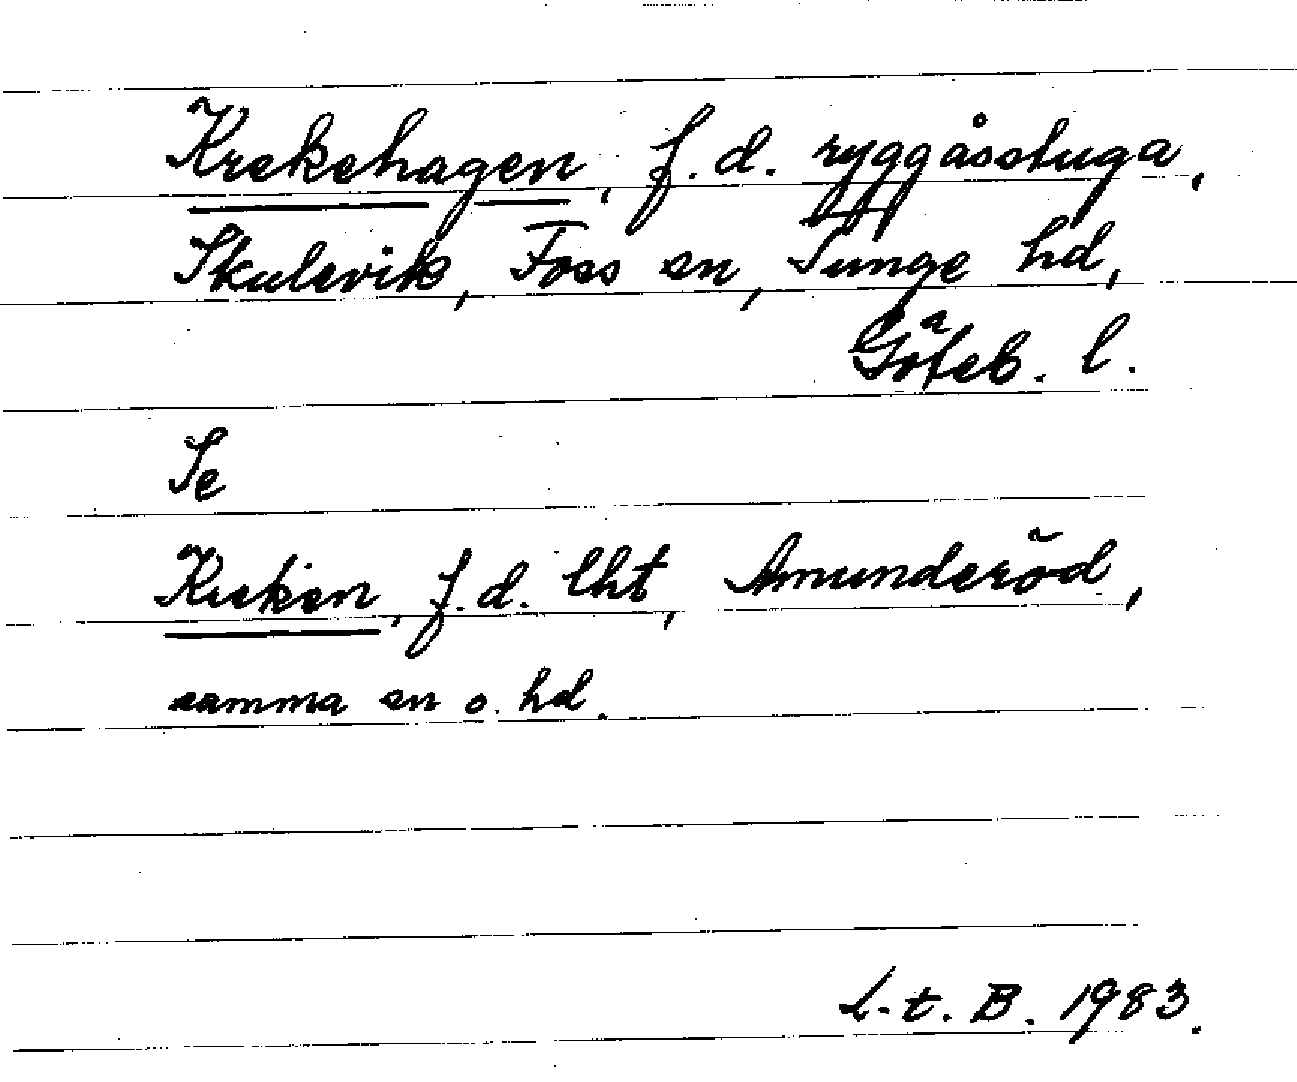 Krekehagen, f.d. ryggåsstuga,
Skulevik, Foss sn, Tunge hd,
Göteb. l.
Se
Kreken, f.d. lht, Amunderöd,
samma sn o. hd.
L.t.B. 1983.